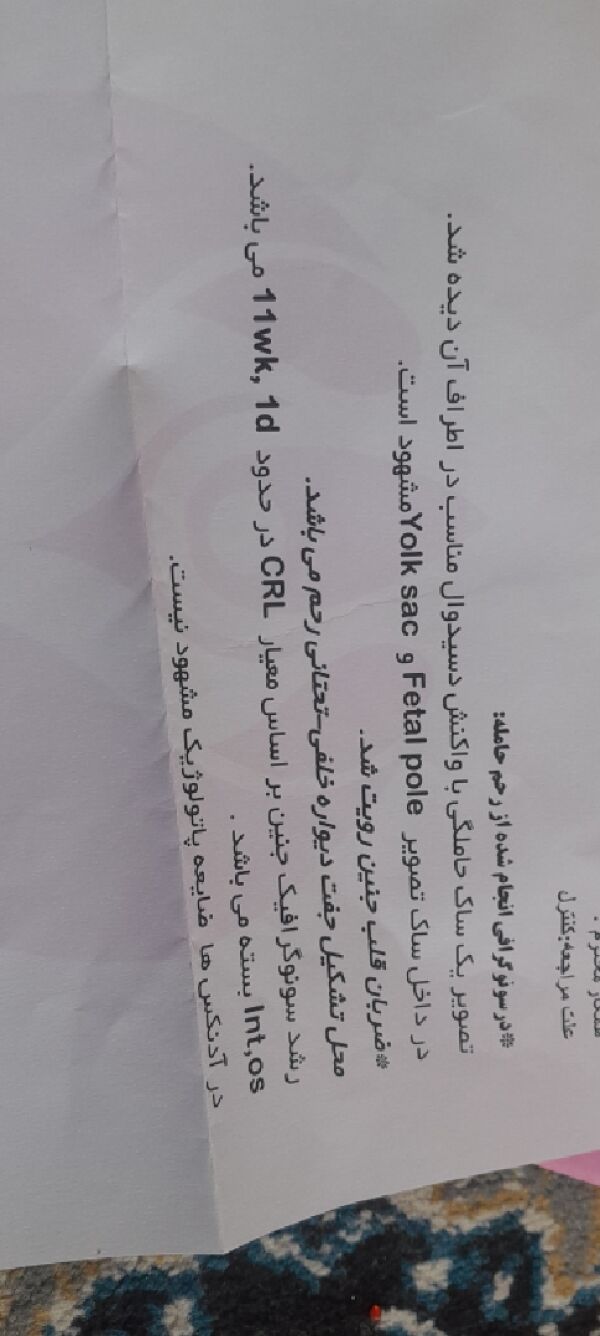 همکار محترم .
علت مراجعه:کنترل
*در سونوگرافی انجام شده از رحم حامله:
تصویر یک ساک حاملگی با واکنش دسیدوال مناسب در اطراف آن دیده شد.
در داخل ساک تصویر Fetal pole و Yolk sac مشهود است.
*ضربان قلب جنین رویت شد.
محل تشکیل جفت دیواره خلفی-تحتانی رحم می باشد.
رشد سونوگرافیک جنین بر اساس معیار CRL در حدود 11wk, 1d می باشد.
Int,os بسته می باشد .
در آدنکس ها ضایعه پاتولوژیک مشهود نیست.